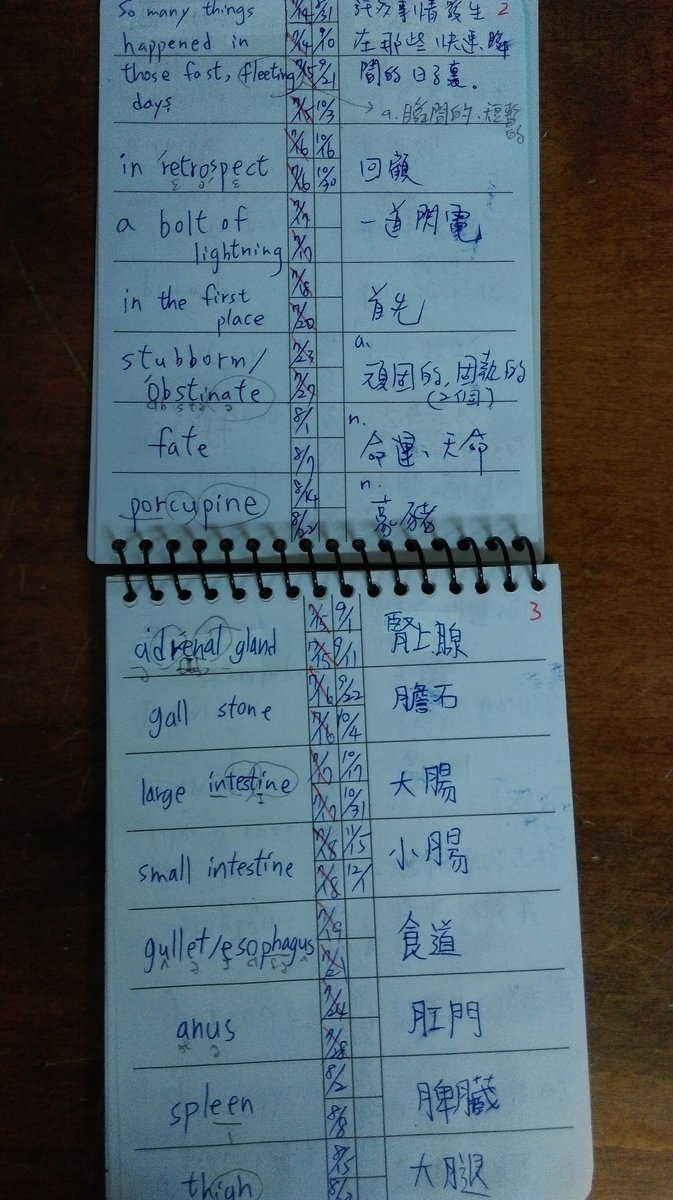 So many things
happened in
those fast, fleeting
days
7/14 8/31
7/14 9/10
7/15 9/21
7/15 10/3
許多事情發生
在那些快速、瞬
間的日子裏.
a.瞬間的、短暫
的
2
in retrospect
7/16 10/16
7/16 10/30
回顧
a bolt of
lightning
7/17
7/17
一道閃電
in the first
place
7/18
7/20
首先
stubborm/
obstinate
7/23
7/27
a.
頑固的,固執的
(2個)
fate
8/1
8/7
n.
命運、天命
porcupine
8/14
8/22
n.
豪豬
3
adrenal gland
7/15 9/1
7/15 9/11
腎上腺
gall stone
7/16 9/22
7/16 10/4
膽石
large intestine
7/17 10/17
7/17 10/31
大腸
small intestine
7/18 11/15
7/18 12/1
小腸
gullet/esophagus
7/19
7/21
食道
anus
7/24
7/28
肛門
spleen
8/2
8/8
脾臟
thigh
8/15
大腿